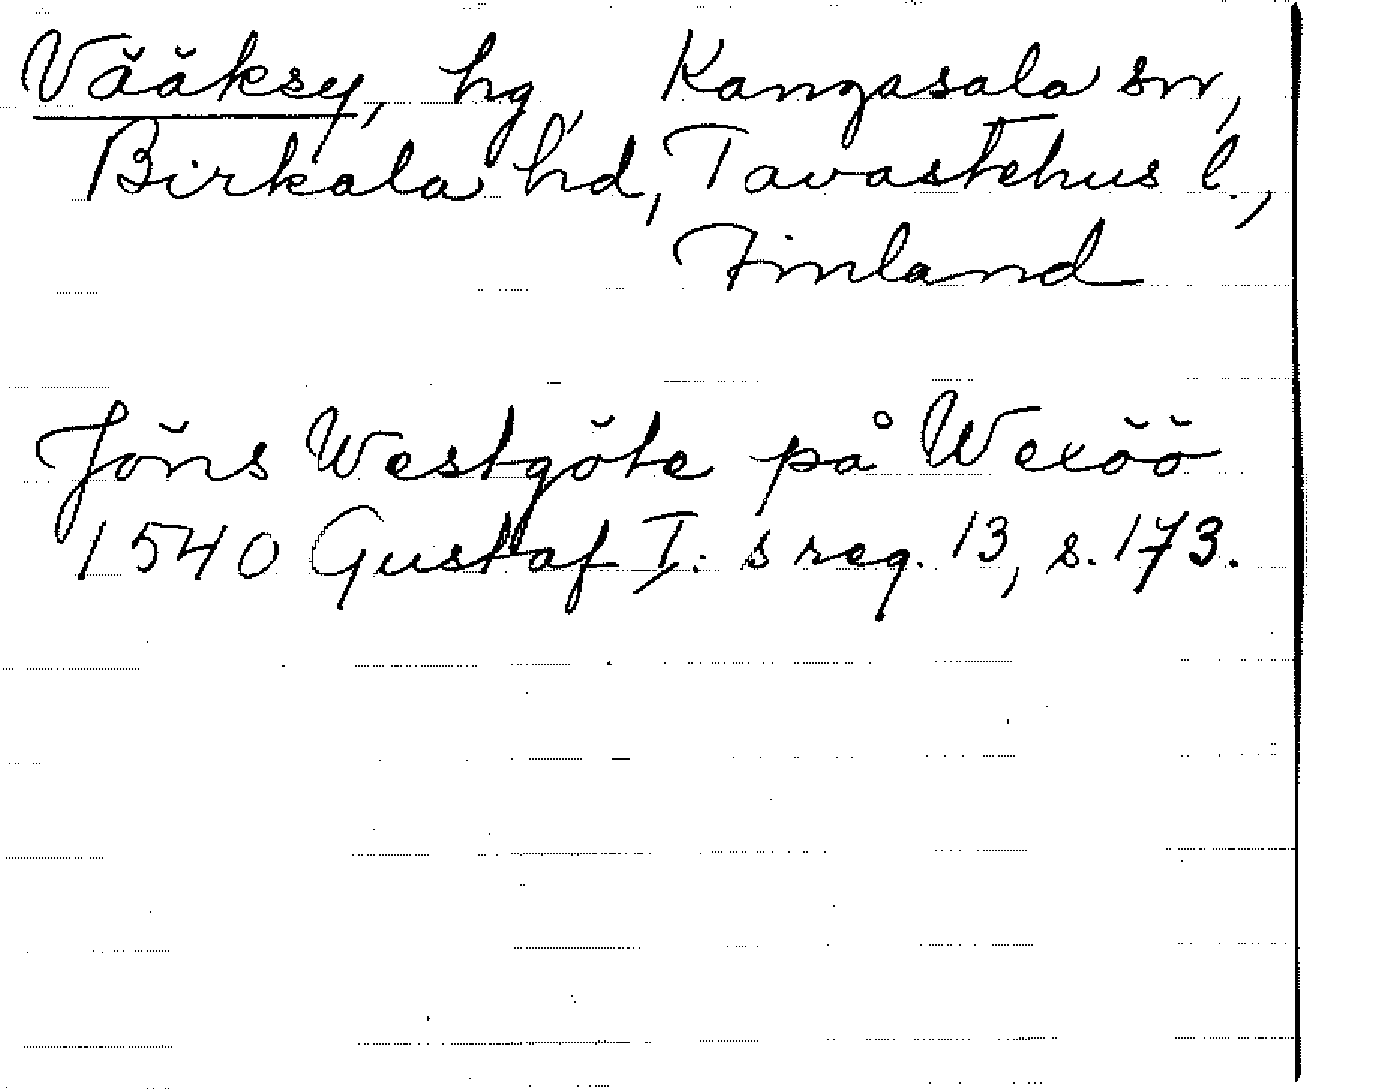 Vääksy, hg, Kangasala sn,
Birkala hd, Tavastehus l.,
Finland
Jöns Westgöte på Wexöö
1540 Gustaf I:s reg. 13, s. 173.